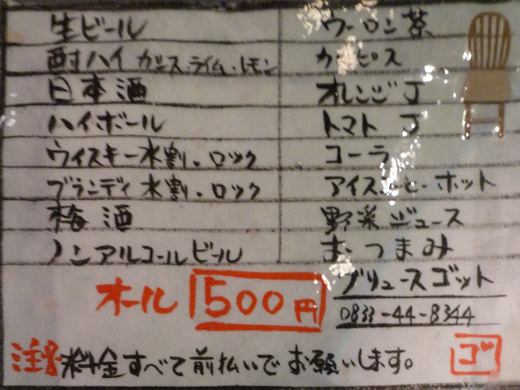 生ビール
酎ハイ カシス・ライム・レモン
日本酒
ハイボール
ウイスキー水割・ロック
ブランディ水割・ロック
梅酒
ノンアルコールビール
ウーロン茶
カルピス
オレンジJ
トマトJ
コーラ
アイスコーヒー・ホット
野菜ジュース
おつまみ
オール 500円
ブリュースゴット
0833-44-8344
注 料金すべて前払いでお願いします。
ゴ